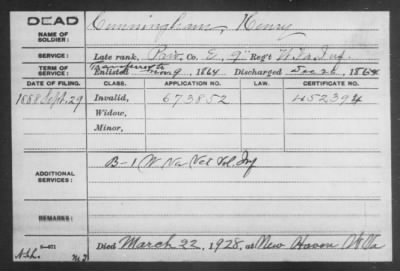 DEAD
NAME OF SOLDIER: Cunningham, Henry
SERVICE: Late rank, Priv. Co. E, 9" Reg't W Va Inf
TERM OF SERVICE: Transferred to
Enlisted Nov 9, 1864 Discharged Dec 26, 1864
DATE OF FILING. CLASS. APPLICATION NO. LAW. CERTIFICATE NO.
1888 Sept. 29 Invalid, 673852 452394
Widow,
Minor,
ADDITIONAL SERVICES: B-1 W Va Vet Vol. Inf
REMARKS:
Died March 22, 1928, at New Haven W Va